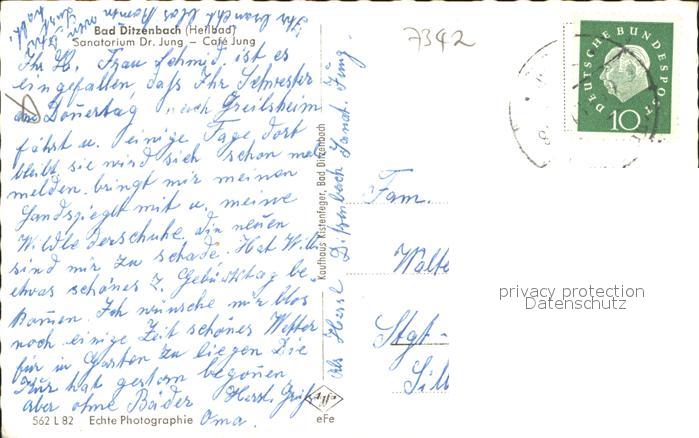 Bad Ditzenbach (Heilbad)
Sanatorium Dr. Jung - Café Jung
Ihr L. Frau Schmid, ist es
eingefallen, daß Ihr Schwester
am Donertag nach Greilsheim
fährt u. einige Tage dort
bleibt, sie wird sich schon mal
melden. bringt mir meinen
Handspiegel mit u. meine
Wildlederschuhe. die neuen
sind mir zu schade. Hat Willi
etwas schönes z. Geburtstag be-
komen. Ich wünsche mir blos
noch einige Zeit schönes Wetter
für in Garten zu liegen Die
Kur hat gestern begonen
aber ohne Bäder Herzl. Grüße
Oma.
562 L 82 Echte Photographie
Kaufhaus Kistenfeger, Bad Ditzenbach
Ditzenbach Sanat. Jung.
eFe
7342
DEUTSCHE BUNDESPOST
10
Fam.
Walte
Stgt-
Silb
privacy protection
Datenschutz